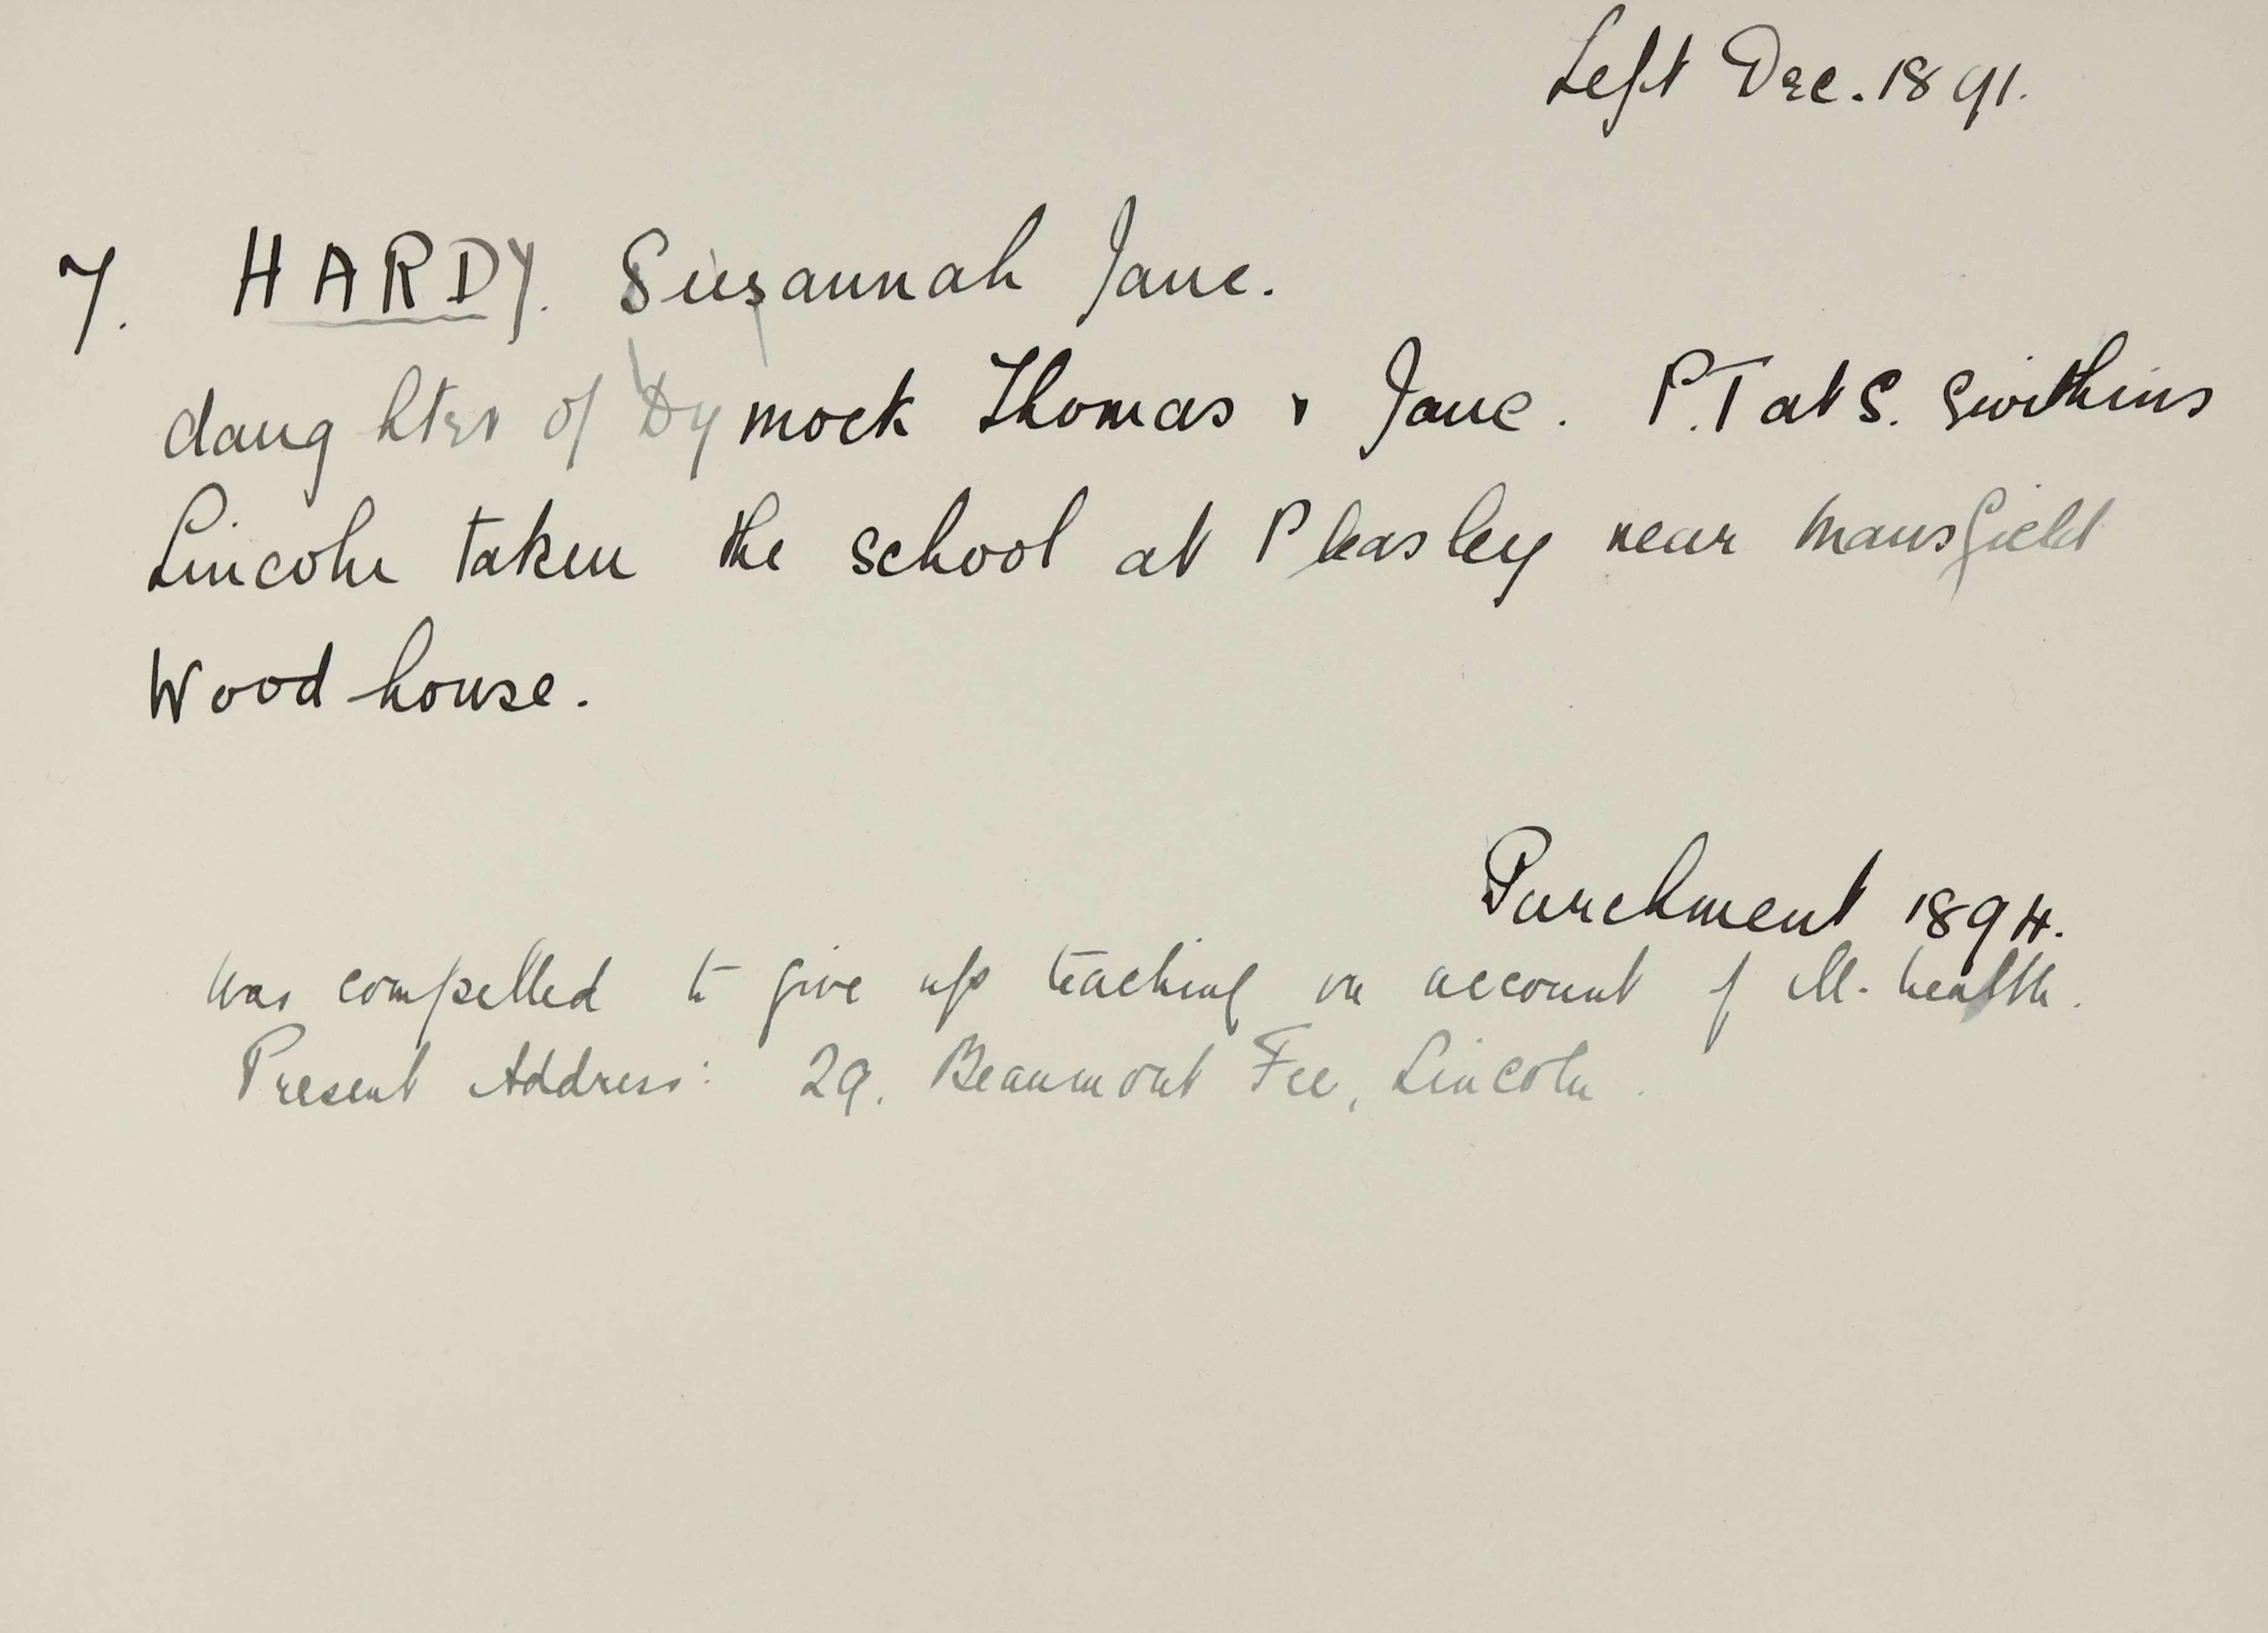 Left Dec. 1891.
7. HARDY. Susannah Jane.
daughter of Dymock Thomas & Jane. P.T at S. Swithins
Lincoln taken the school at Pleasley near Mansfield
Woodhouse.
Parchment 1894.
Was compelled to give up teaching on account of ill-health.
Present Address: 29. Beaumont Fee, Lincoln.